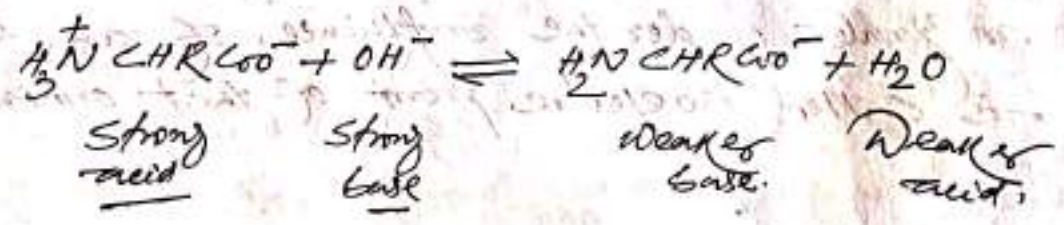 H₃N⁺CHRCOO⁻ + OH⁻ ⇌ H₂NCHRCOO⁻ + H₂O
Strong acid Strong base Weaker base. Weaker acid.